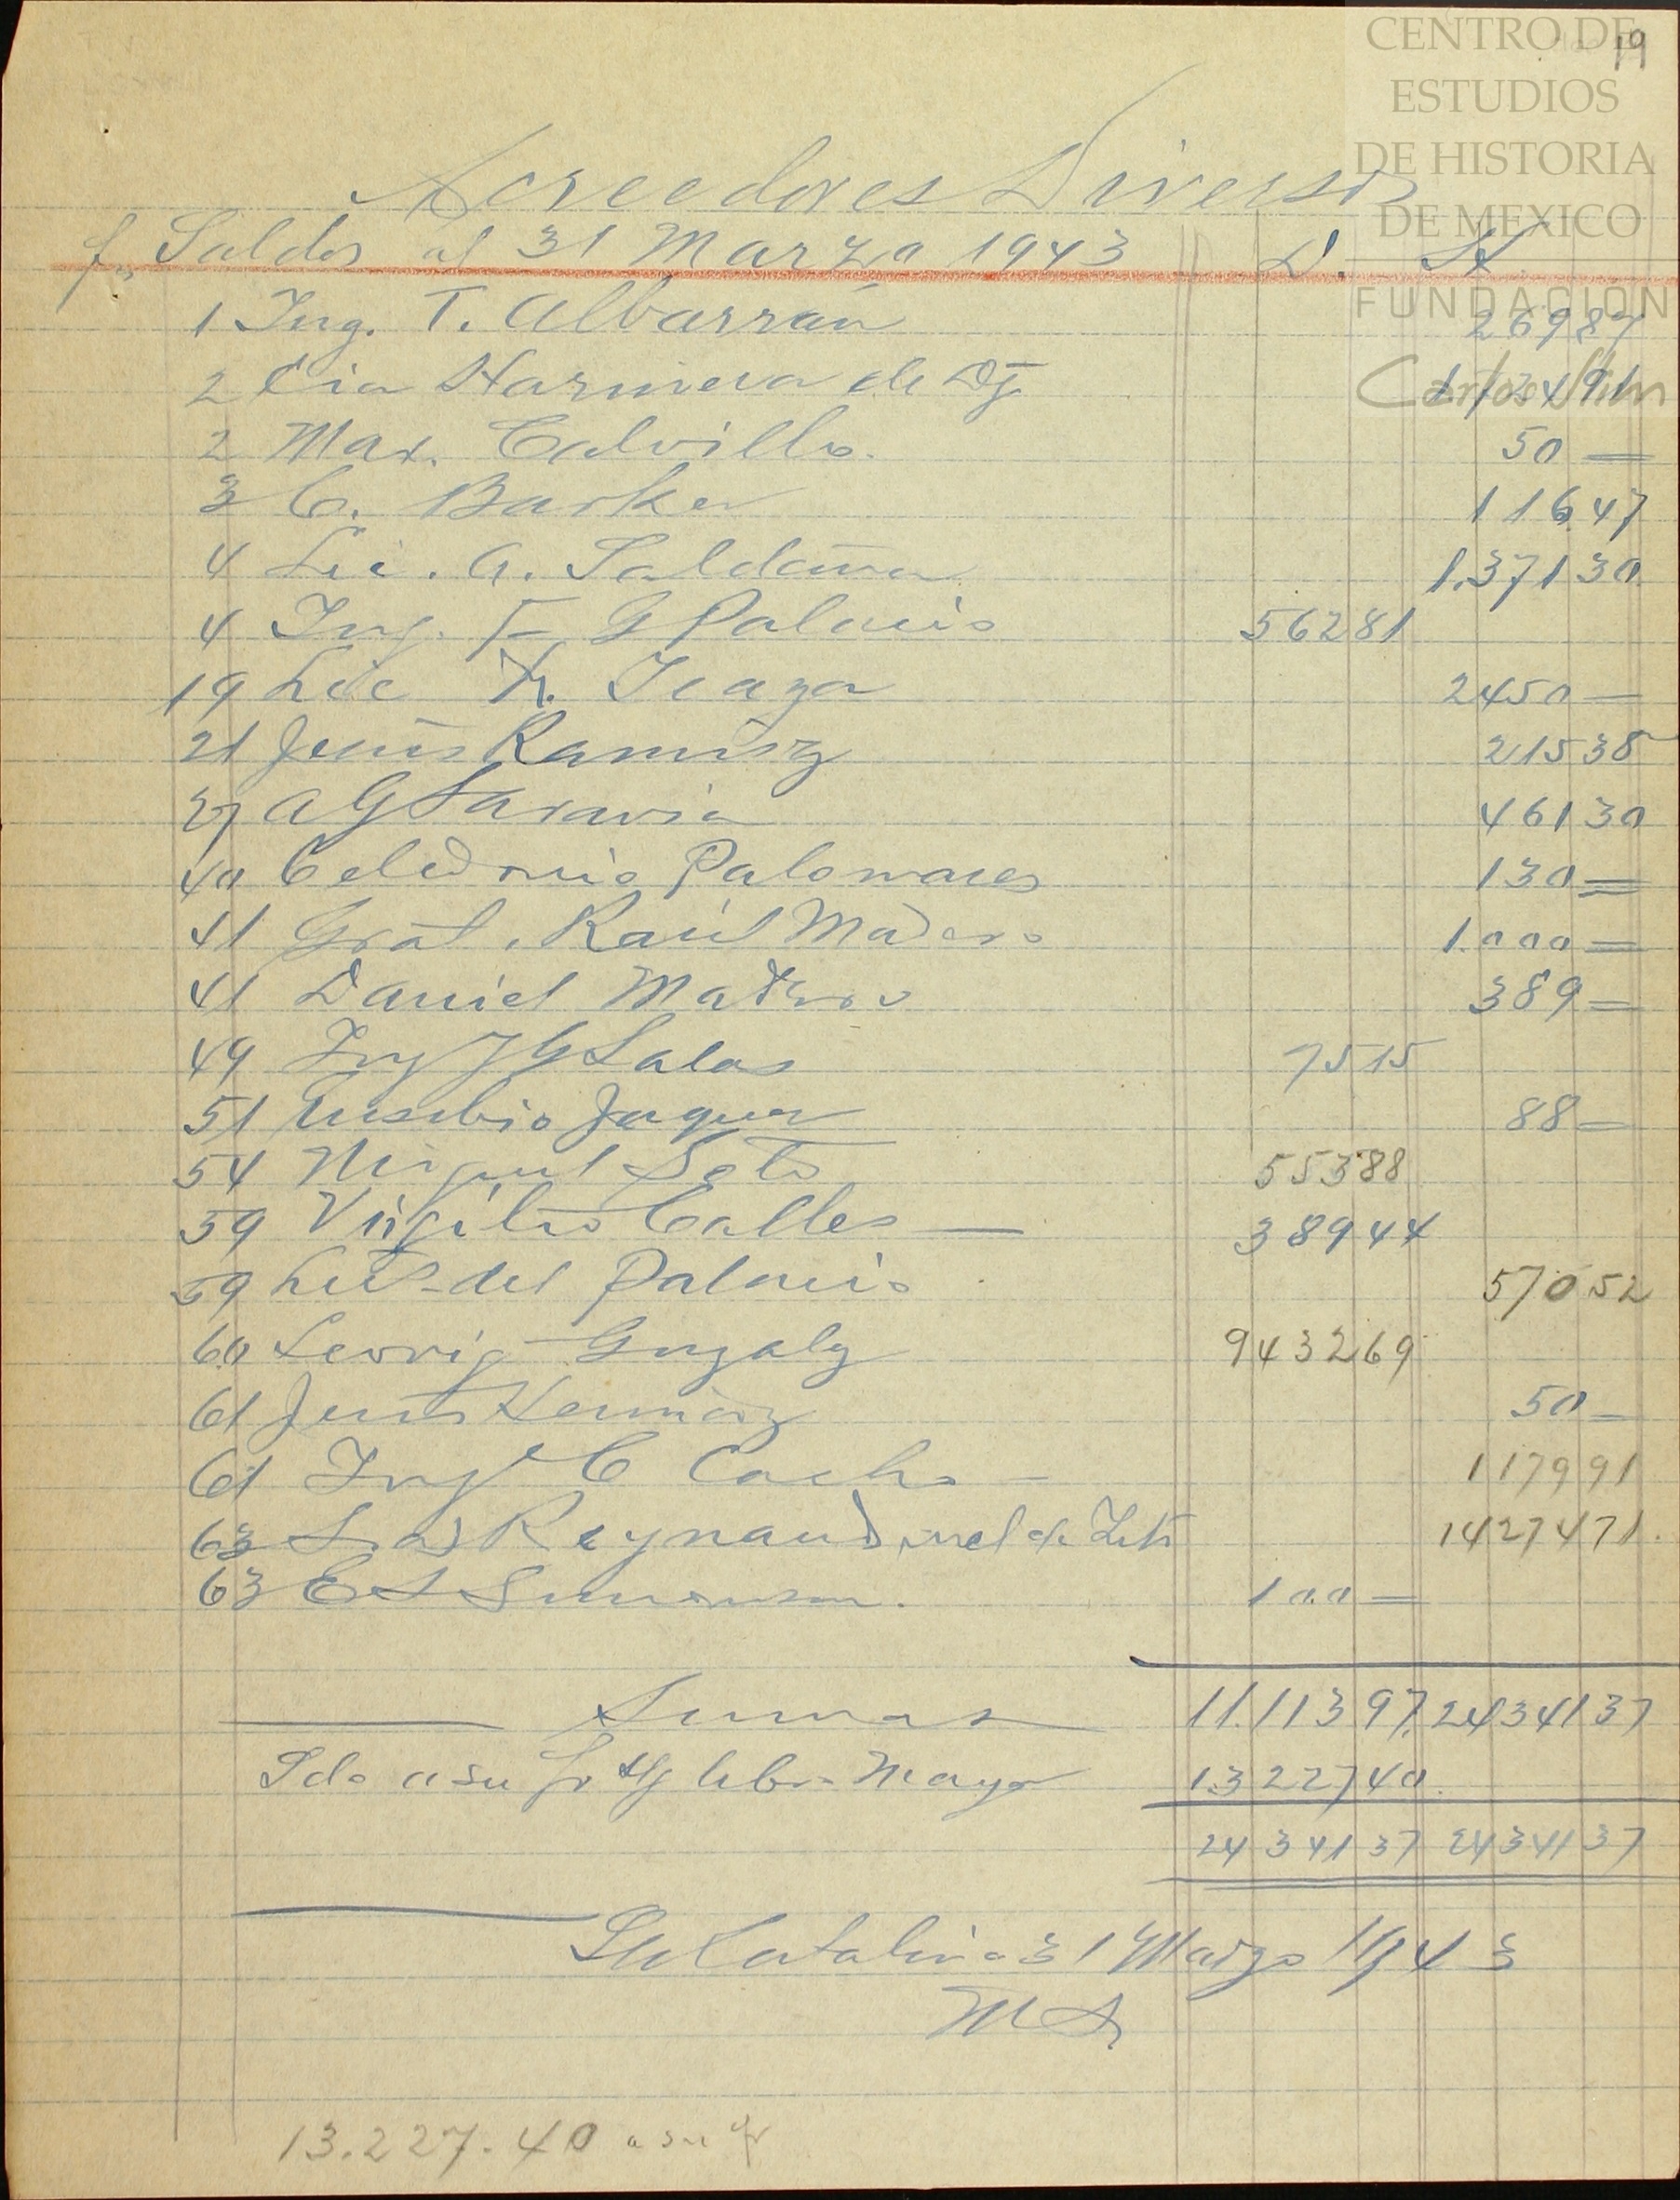 CENTRO DE
ESTUDIOS
DE HISTORIA
DE MEXICO
FUNDACIÓN
Carlos Slim
19
Acreedores Diversos
fs Saldos al 31 Marzo 1943 D. H
1 Ing. T. Albarrán 269 87
2 Cia Harinera de Dgo 1,124 91
2 Max. Calvillo. 50 —
3 C. Barker 116.47
4 Lic. A. Saldaña 1.371 30
4 Ing. F G Palacio 562 81
19 Lic X. Icaza 2450 —
21 Jesús Ramírez 215 38
27 A G Saravia 461 30
40 Celedonio Palomares 130 =
41 Gral. Raúl Madero 1.000 =
41 Daniel Madero 389 =
49 Ing J G Salas 75 15
51 Eusebio Jaquez 88 —
54 Miguel Soto 553 88
59 Virgilio Calles — 389 44
59 Luis del Palacio 570 52
60 Ledvig Gnzalz 9432 69
61 Jesús 50 —
61 Ing C Cacho — 1179 91
63 Reynaud 14274 71
63 E S 100 =
Sumas 11.113 97 24341 37
Sdo a su fr s/ libro Mayor 13227 40
24341 37 24341 37
Sta Catalina 31 Marzo 1943
13.227.40 a su fr